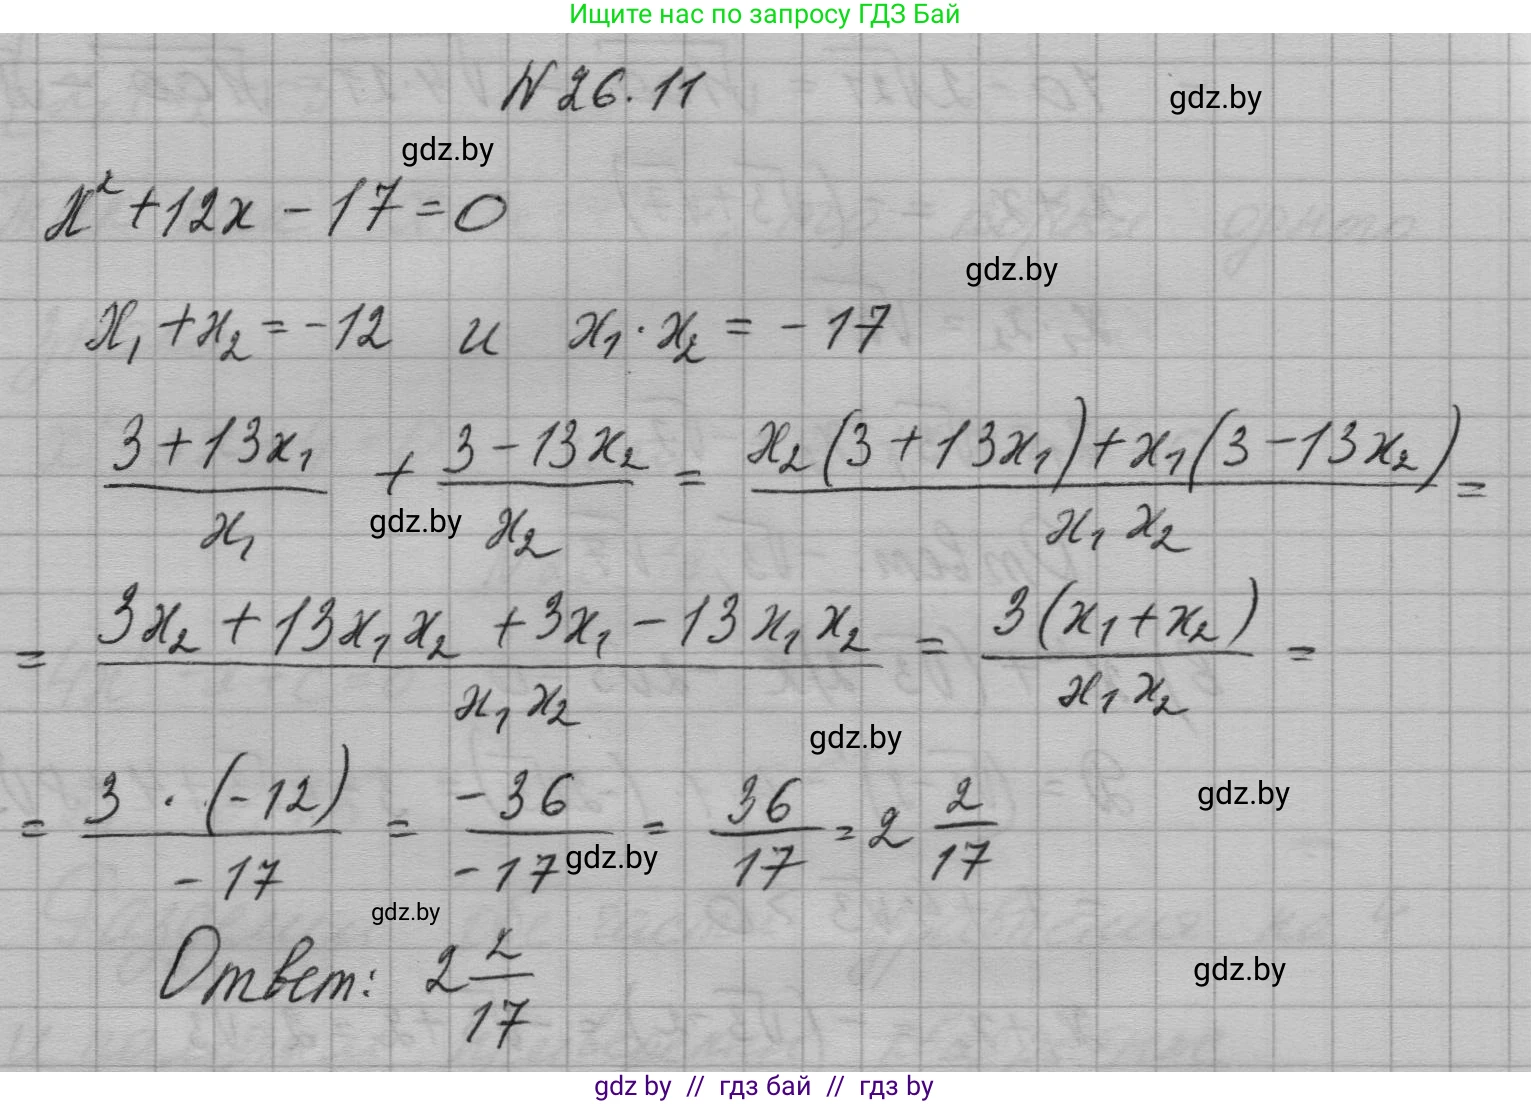 Ищите нас по запросу ГДЗ Бай
N 26.11
gdz.by
gdz.by
x² + 12x - 17 = 0
gdz.by
x₁ + x₂ = -12 и x₁ · x₂ = -17
(3 + 13x₁)/x₁ + (3 - 13x₂)/x₂ = (x₂(3 + 13x₁) + x₁(3 - 13x₂))/(x₁ x₂) =
gdz.by
= (3x₂ + 13x₁x₂ + 3x₁ - 13x₁x₂)/(x₁x₂) = 3(x₁ + x₂)/(x₁ x₂) =
gdz.by
gdz.by
= 3 · (-12)/-17 = -36/-17 = 36/17 = 2 2/17
gdz.by
gdz.by
Ответ: 2 2/17
gdz.by
gdz by // гдз бай // гдз by